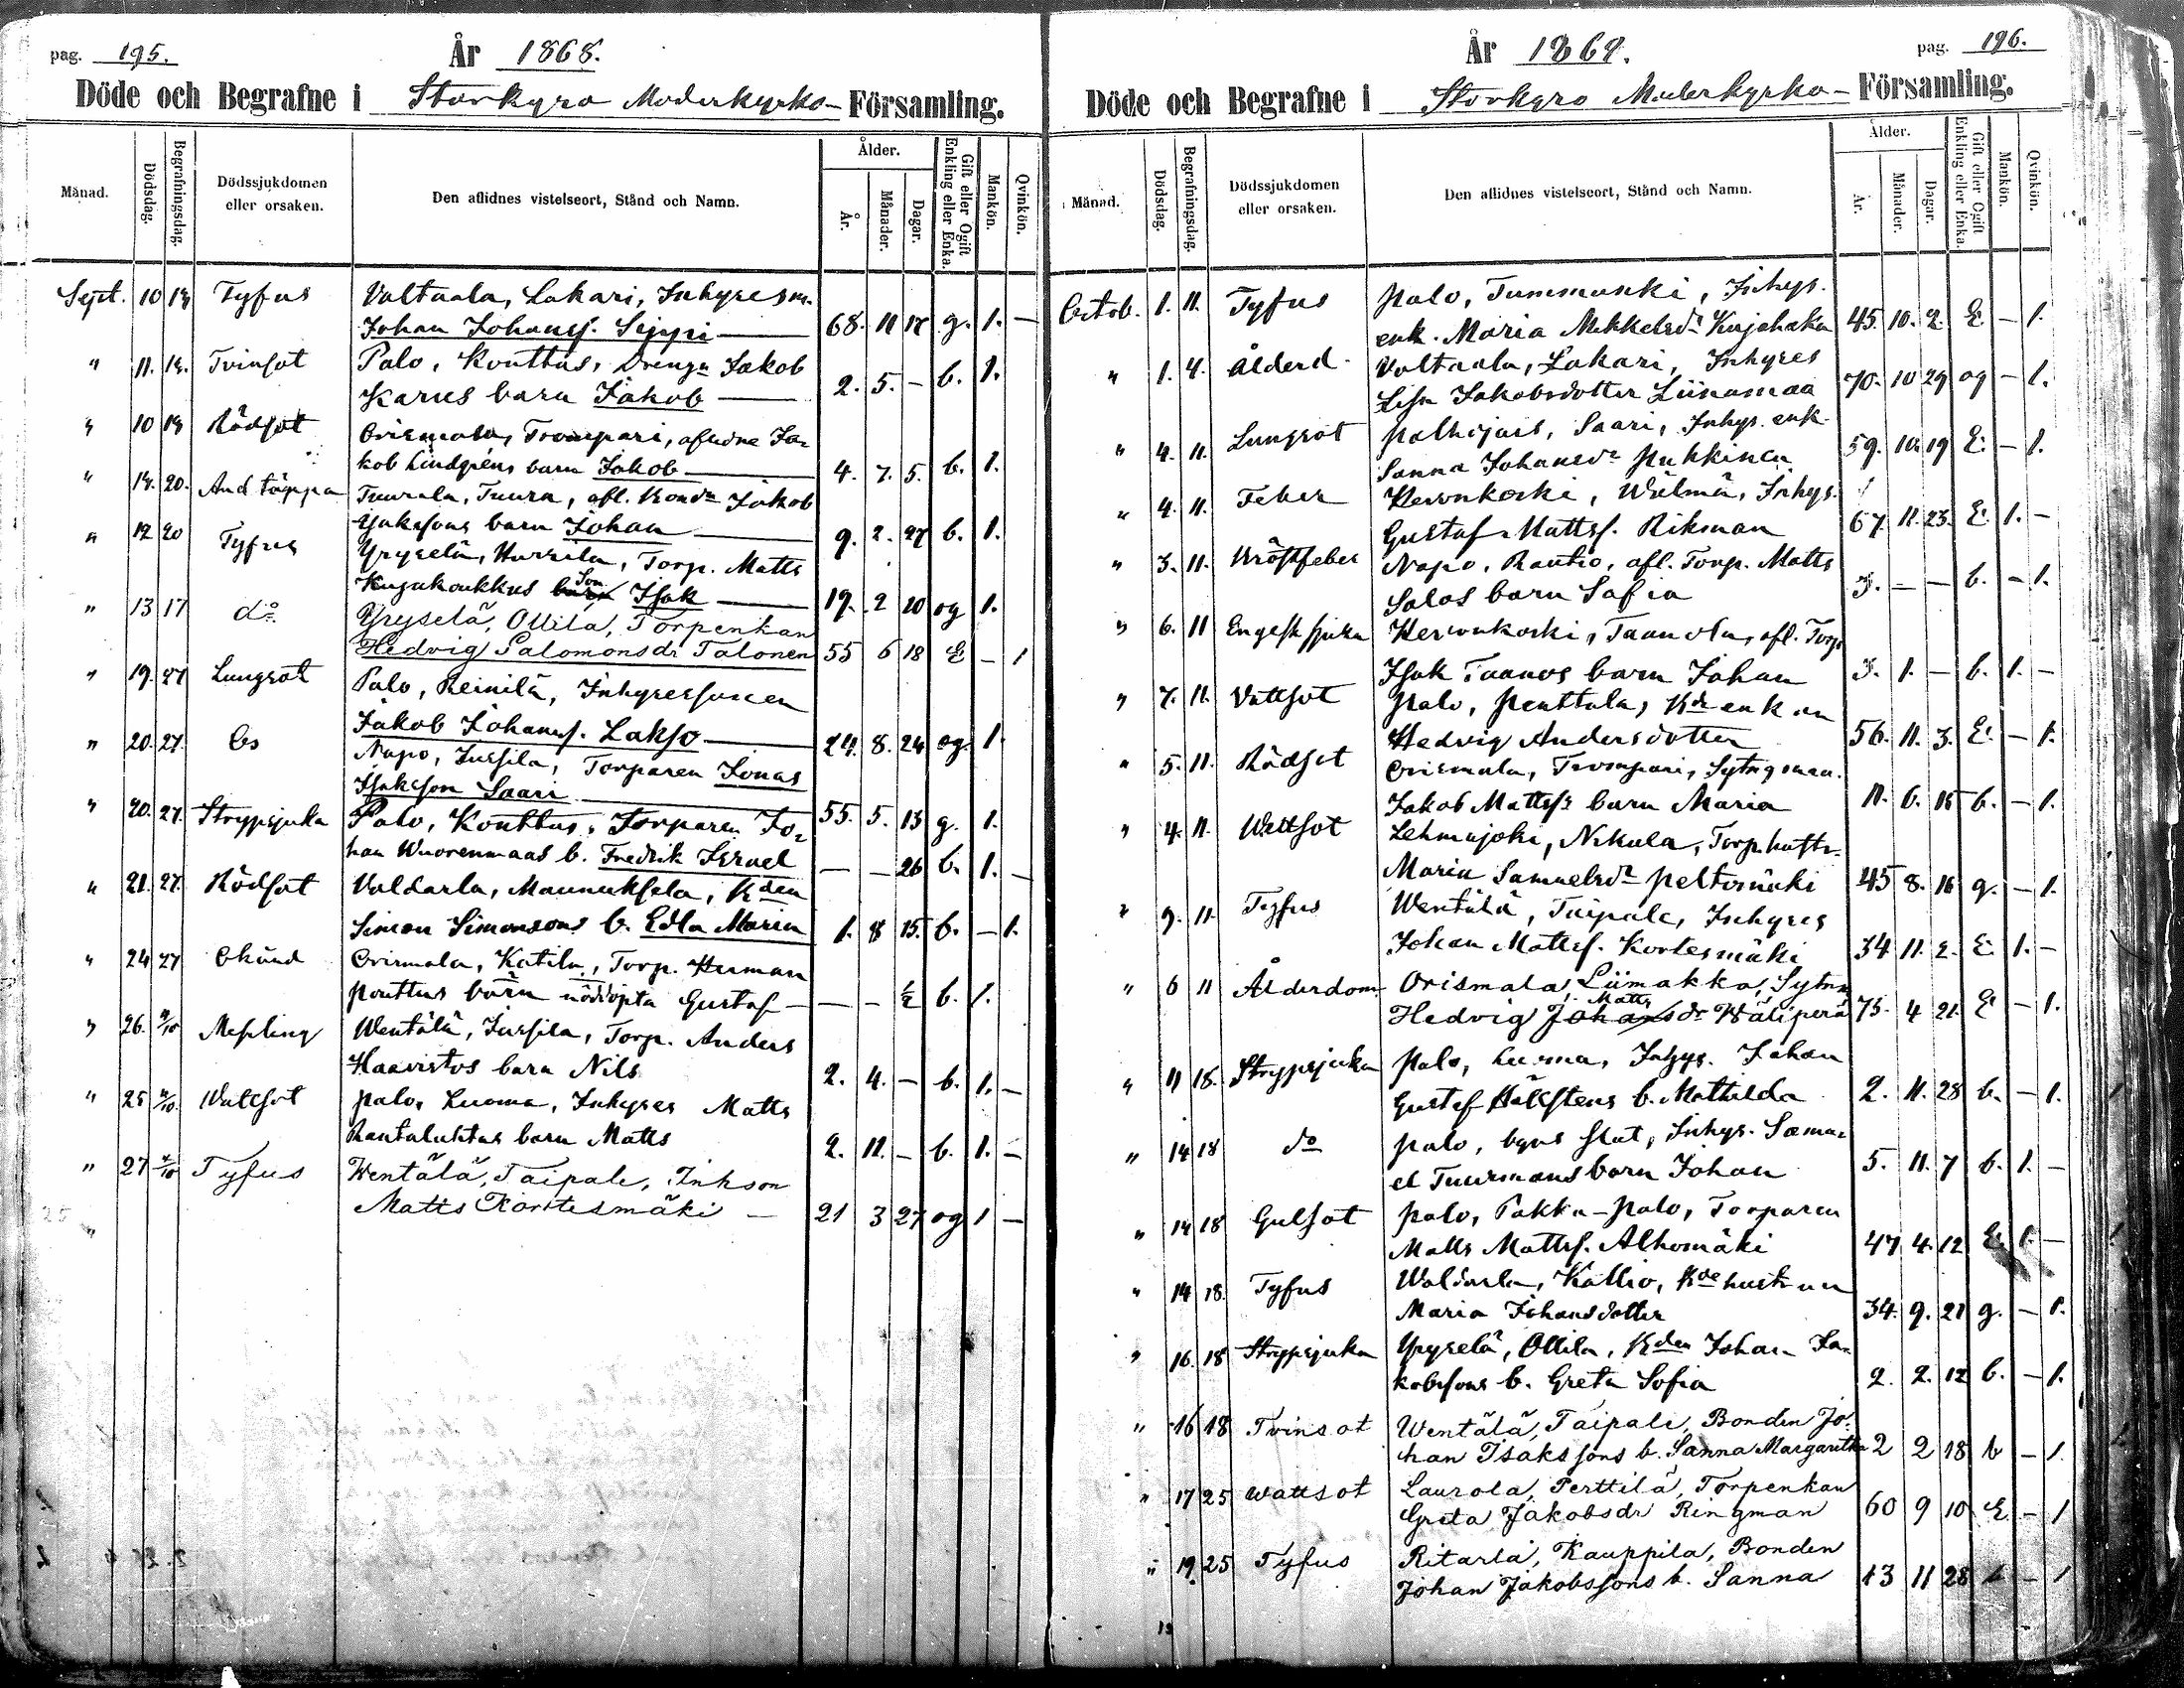 pag. 195.
År 1868.
Döde och Begrafne i Storkyro Moderkyrko- Församling.
Månad.
Dödsdag.
Begrafningsdag.
Dödssjukdomen eller orsaken.
Den aflidnes vistelseort, Stånd och Namn.
Ålder.
År.
Månader.
Dagar.
Gift eller Ogift
Enkling eller Enka.
Mankön.
Qvinkön.
Sept. 10 Tyfus Valtaala, Lakari, Inhyresm.
Johan Johanss. Seppi 68. 11 17 g. 1. —
" 11. Tvinsot Palo, Kouttus, Drengn Jakob
Karus barn Jakob 2. 5. — b. 1.
" 10 Rödsot Orismala, Trompari, afledne Ja-
kob Lindgréns barn Jakob 4. 7. 5. b. 1.
" 14. 20. And täppa Tuurala, Tuura, afl. Bonden Jakob
barn Johan 9. 2. 27 b. 1.
" 12 20 Tyfus Yryselä, Torp. Matts
Kujakoukkus barn Son Isak 19. 2 20 og 1.
" 13 17 do Yryselä, Ollila, Torpenkan
Hedvig Salomonsdr Talonen 55 6 18 E — 1
" 19. 27 Lungsot Palo, Reinilä, Inhyressonen
Jakob Johanss. Lakso 24. 8. 24 og. 1.
" 20. 27. Napo, Jussila, Torparen Jonas
Isaksson Saari 55. 5. 13 g. 1.
" 20. 27. Strypsjuka Palo, Kouttus, Torparen Jo-
han Wuorenmaas b. Fredrik Israel — — 26 b. 1. —
" 21. 27. Rödsot Valdarla, Maunuksela, Kden
Simon Simonsons b. Edla Maria 1. 8 15. b. — 1.
" 24 27 Okänd Orismala, Katila, Torp. Herman
Pouttus barn nöddöpta Gustaf — — — ½ b. 1.
" 26. 4/10 Messling Wentälä, Jussila, Torp. Anders
Haavistos barn Nils 2. 4. — b. 1. —
" 25 4/10 Wattsot Palo, Luoma, Inhyses Matts
Rantaluhtas barn Matts 2. 11. — b. 1. —
" 27 4/10 Tyfus Wentälä, Taipale, Inhson
Matts Kortesmäki — 21 3 27 og 1 —
25
"
pag. 196.
År 1868.
Döde och Begrafne i Storkyro Moderkyrko- Församling.
Månad.
Dödsdag.
Begrafningsdag.
Dödssjukdomen eller orsaken.
Den aflidnes vistelseort, Stånd och Namn.
Ålder.
År.
Månader.
Dagar.
Gift eller Ogift
Enkling eller Enka.
Mankön.
Qvinkön.
Octob. 1. 11. Tyfus Palo, Tummunki, Inhys.
enk. Maria Mikkelsdr Kujahaka 45. 10. 2. E. — 1.
" 1. 4. Ålderd. Valtaala, Lakari, Inhyses
Lisa Jakobsdotter Liinamaa 70. 10 29 og — 1.
" 4. 11. Lungsot Palhojais, Saari, Inhys. enk.
Sanna Johansdr Pukkinen 59. 10. 19 E. — 1.
" 4. 11. Feber Hervnkoski, Wälmä, Inhys.
Gustaf Mattss. Rikman 67. 11. 23. E. 1. —
" 3. 11. Bröstfeber Napo, Rautio, afl. Torp. Matts
Salos barn Sofia 3. — — b. — 1.
" 6. 11 Engelsk sjuka Hervnkoski, Taanola, afl. Torp.
Isak Taanos barn Johan 3. 1. — b. 1. —
" 7. 11. Vattsot Palo, Penttala, Kde enkan
Hedvig Andersdotter 56. 11. 3. E. — 1.
" 5. 11. Rödsot Orismala, Trompari, Sytngsman.
Jakob Mattss barn Maria 11. 6. 15 b. — 1.
" 4. 11. Wattsot Lehmäjoki, Nikula, Torp. hustr.
Maria Samuelsdr Peltomäki 45 8. 16 g. — 1.
" 9. 11. Tyfus Wentälä, Taipale, Inhyses
Johan Mattss. Kortesmäki 34 11. 2. E. 1. —
" 6 11 Ålderdom Orismala, Liimakka, Sytnm
Hedvig Johans Matts dr Wäliperä 75. 4 21. E — 1.
" 11 18. Strypsjuka Palo, Luoma, Inhys. Johan
Gustaf Hällstens b. Mathilda 2. 11. 28 b. — 1.
" 14 18 do Palo, byns flat, Inhys. Samu-
el Tuurmans barn Johan 5. 11. 7 b. 1. —
" 14 18 Gulsot Palo, Pakka-Palo, Torparen
Matts Mattss. Alhomäki 47 4. 12 E. 1. —
" 14 18. Tyfus Waldarla, Kallio, Kde hustrun
Maria Johansdotter 34. 9. 21 g. — 1.
" 16. 18 Strypsjuka Yryselä, Ollila, Kden Johan Ja-
kobssons b. Greta Sofia 2. 2. 12 b. — 1.
" 16 18 Tvinsot Wentälä, Taipale, Bonden Jo-
han Isakssons b. Sanna Margaritha 2 2 18 b — 1.
" 17 25 Wattsot Laurola, Perttilä, Torpenkan
Greta Jakobsdr Ringman 60 9 10 E — 1
" 19. 25 Tyfus Ritarla, Kauppila, Bonden
Johan Jakobssons b. Sanna 13 11 28 b — 1